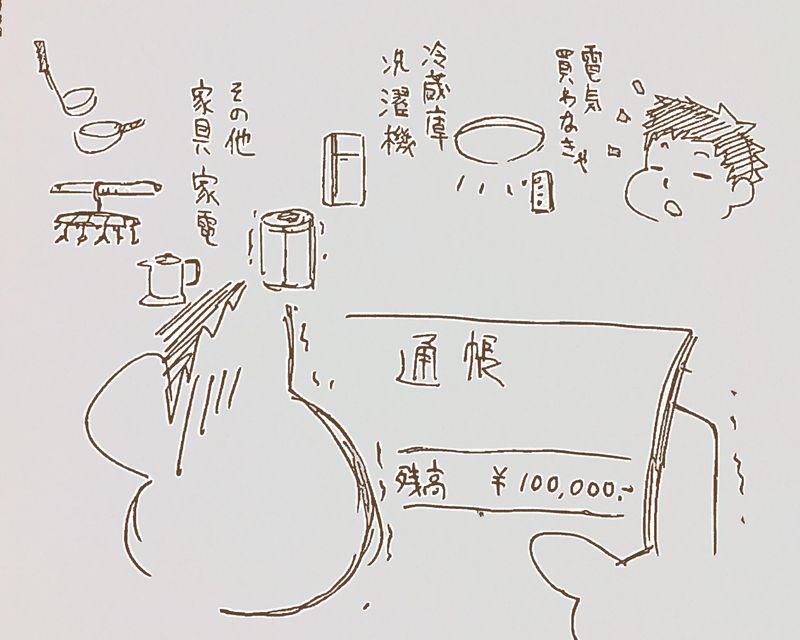 電気
買わなきゃ
冷蔵庫
洗濯機
その他
家具家電
通帳
残高 ¥100,000.-